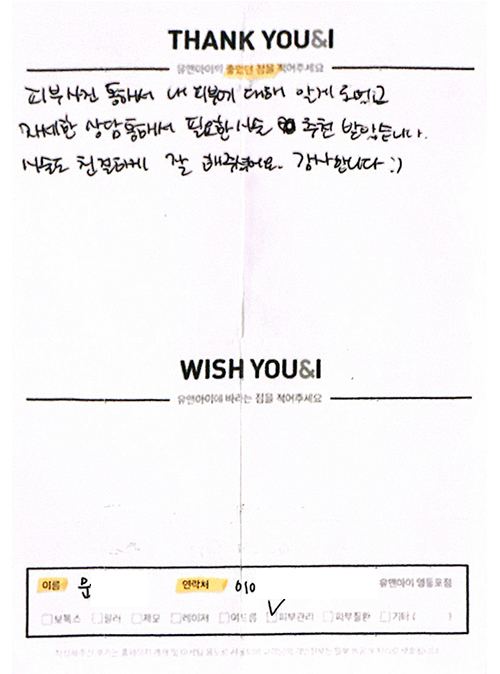 THANK YOU&I
유앤아이의 좋았던 점을 적어주세요
피부사진 통해서 내 피부에 대해 알게 되었고
자세한 상담통해서 필요한 시술 추천 받았습니다.
시술도 친절하게 잘 해주셨어요. 감사합니다 :)
WISH YOU&I
유앤아이에 바라는 점을 적어주세요
이름 윤 연락처 010 유앤아이 영등포점
보톡스 필러 제모 레이저 여드름 피부관리 피부질환 기타 ( )